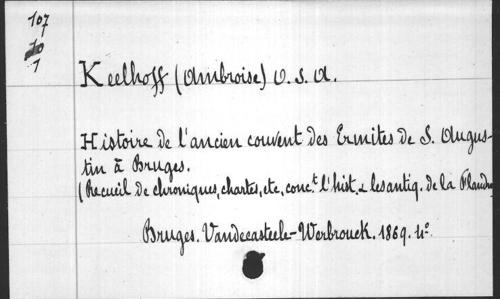 107
1
Keelhoff (Ambroise) O. S. A.
Histoire de l'ancien couvent des Ermites de S. Augus-
tin à Bruges.
(Recueil de chroniques, chartes, etc, conc.t l'hist. & les antiq. de la Flandre
Bruges. Vandecasteele-Werbrouck. 1869. 4º.